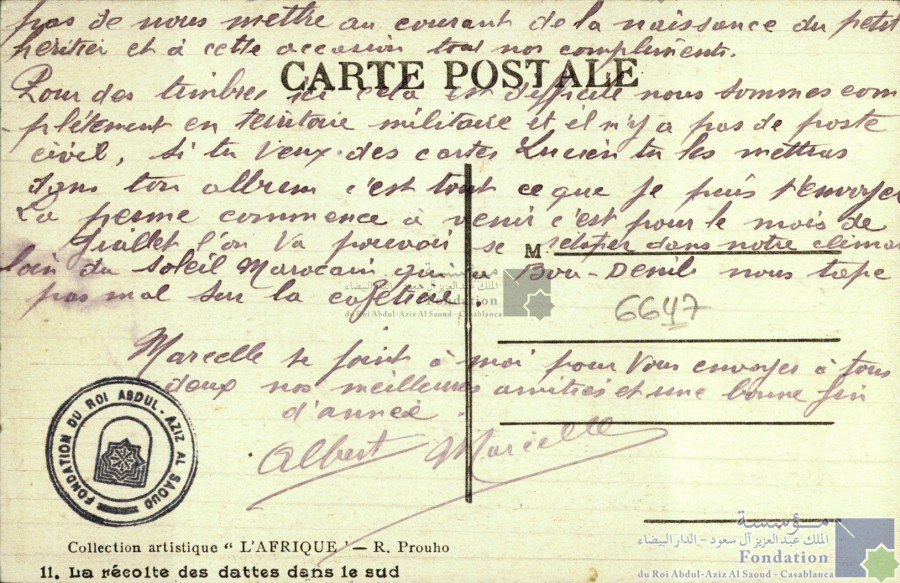 pas de nous mettre au courant de la naissance du petit
héritier et à cette occasion tout nos compliments.
CARTE POSTALE
Pour des timbres ici cela est difficile nous sommes com
plètement en territoire militaire et il n'y a pas de poste
civil, si tu veux des cartes Lucien tu les mettras
dans ton album c'est tout ce que je puis t'envoyer
La perme commence à venir c'est pour le mois de
Juillet l'on va pouvoir se retaper dans notre climat
M
loin du soleil Marocain qui a Bou-Denib nous tape
pas mal sur la cafetière.
مؤسسة
الملك عبد العزيز آل سعود - الدار البيضاء
Fondation
du Roi Abdul-Aziz Al Saoud - Casablanca
6647
Marcelle se joint à moi pour vous envoyer à tous
deux nos meilleures amitiés et une bonne fin
d'année.
Albert Marcelle
FONDATION DU ROI ABDUL-AZIZ AL SAOUD
Collection artistique "L'AFRIQUE" — R. Prouho
11. La récolte des dattes dans le sud
مؤسسة
الملك عبد العزيز آل سعود - الدار البيضاء
Fondation
du Roi Abdul-Aziz Al Saoud - Casablanca